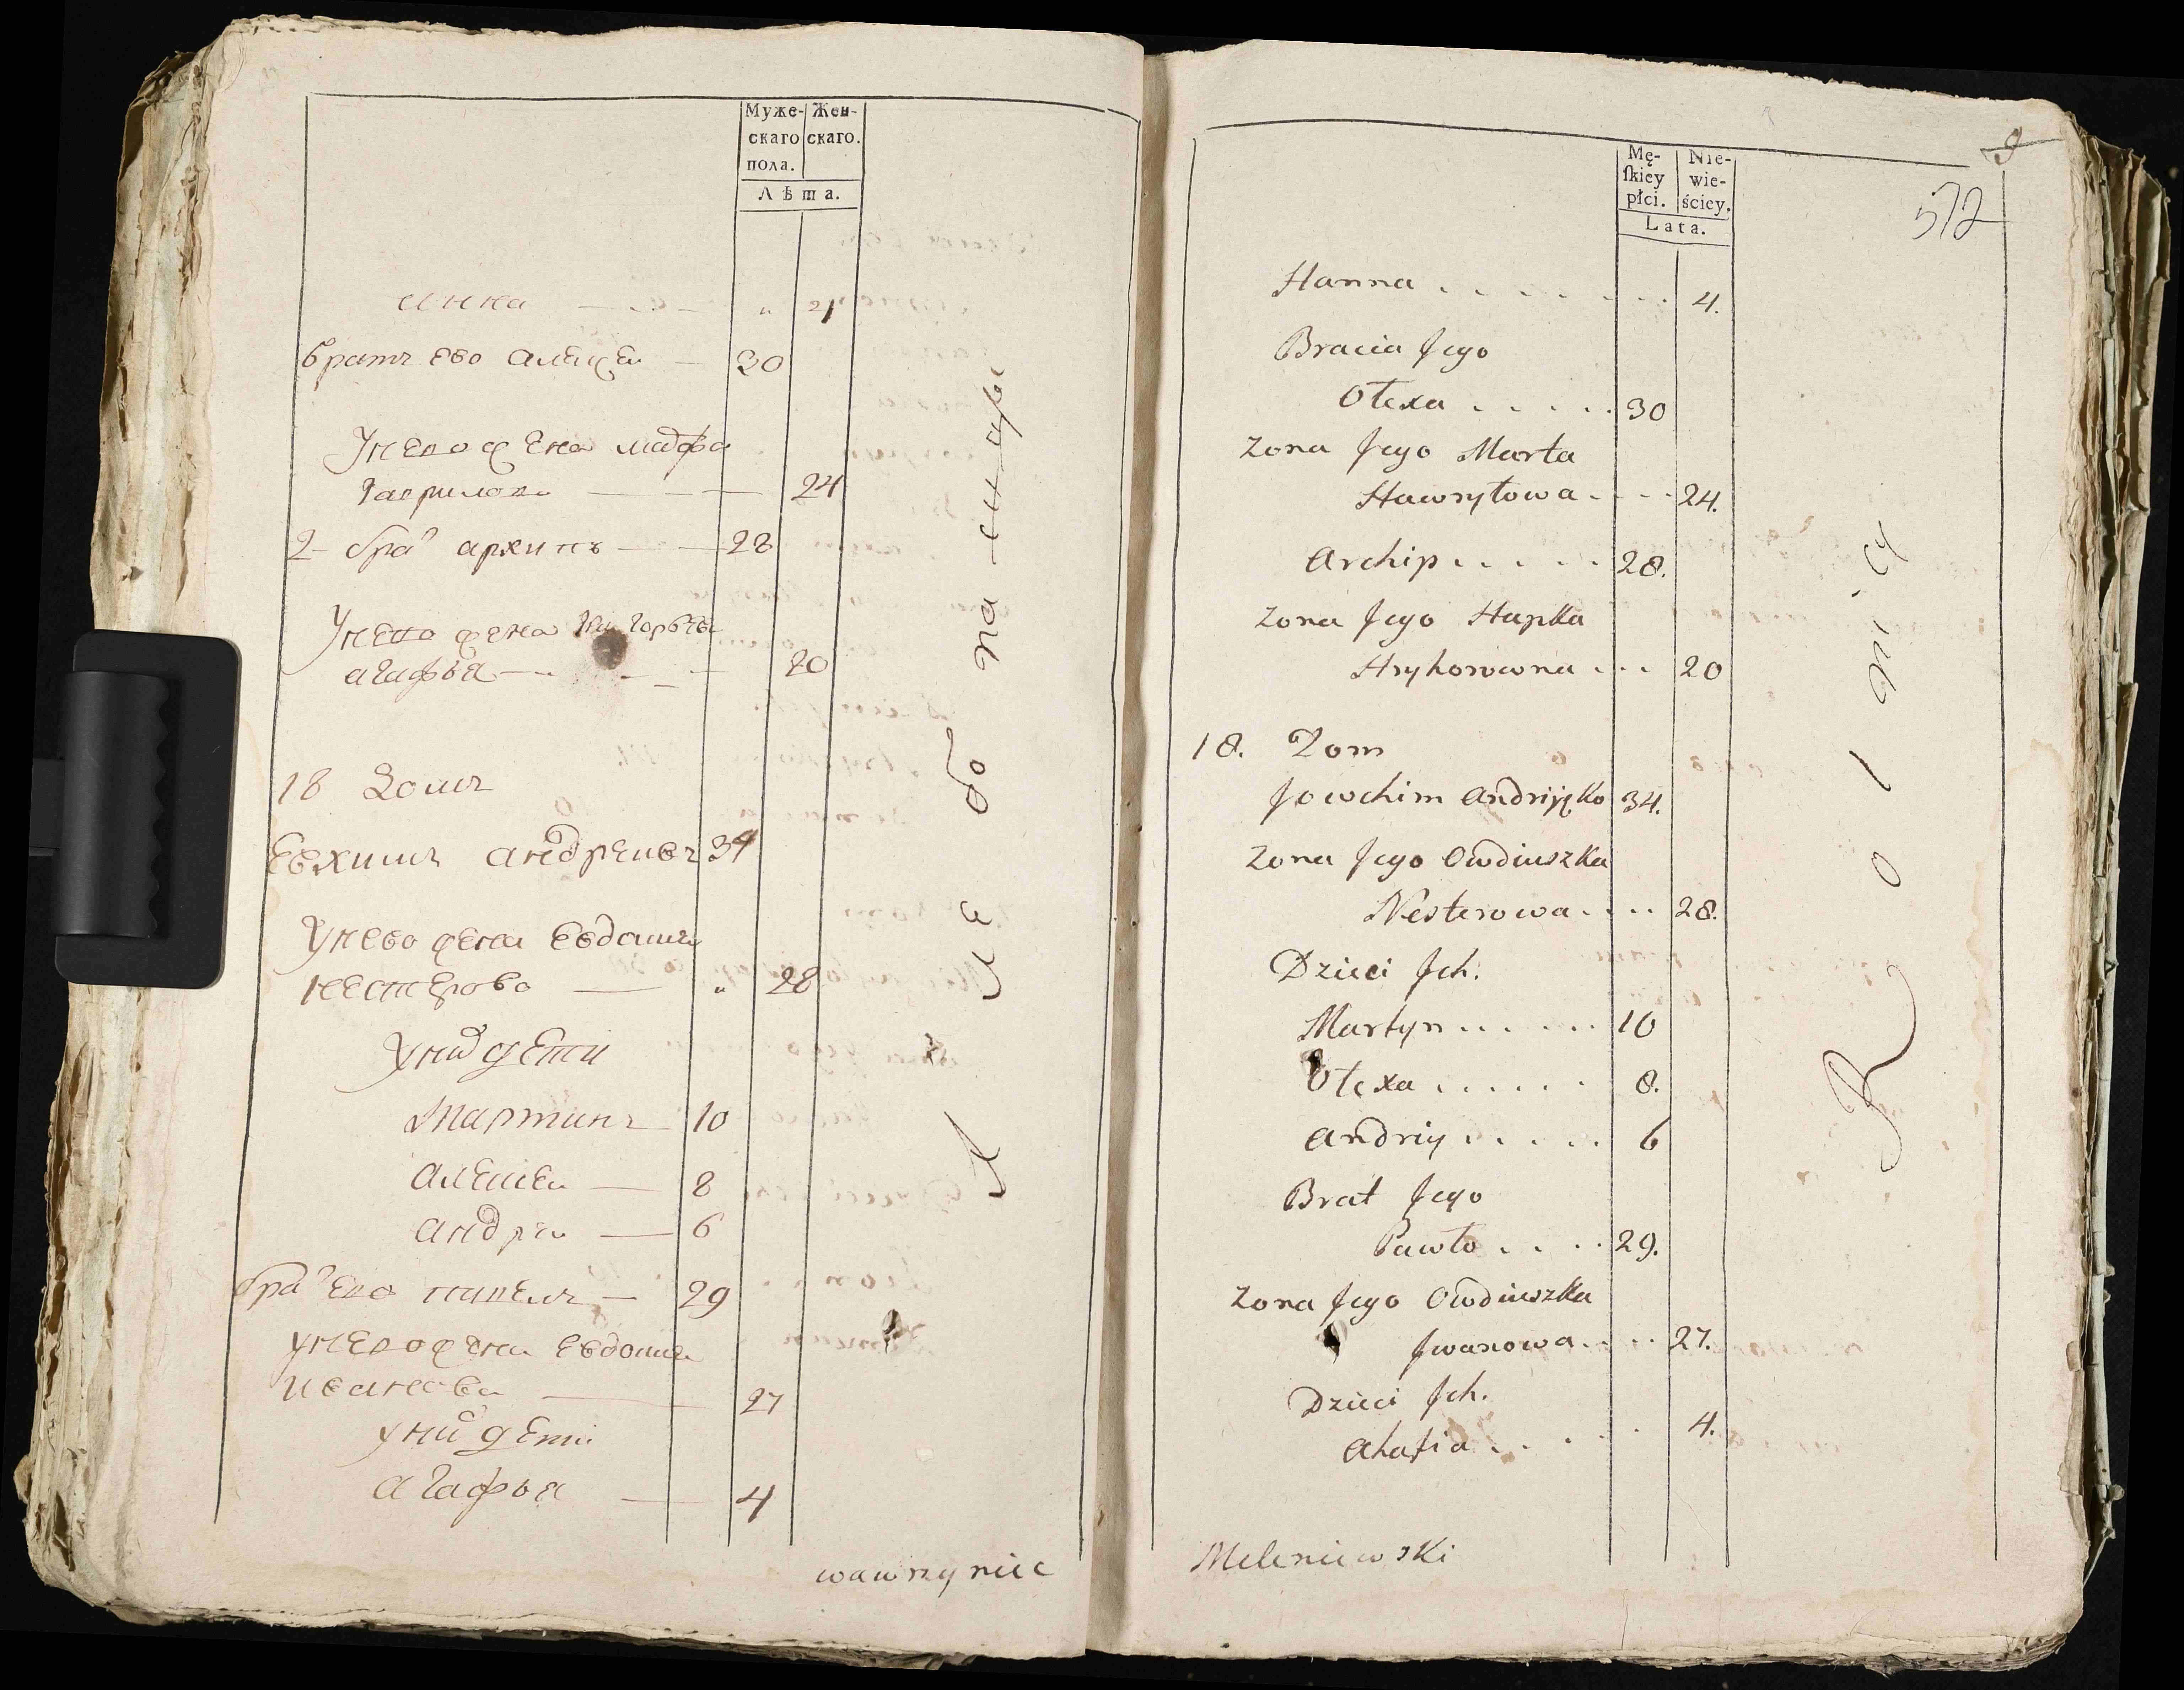 Муже-
скаго
пола.
Жен-
скаго.
Лѣта.
анна — " 4
братъ ево алексеи — 30
У нево жена марфа
Гаврилова — 24
2 бра т архипъ — 28
У нево жена григорьева
агафья — 20
18 Домъ
Евхимъ андреивъ 34
У нево жена Евдошка
нестерова — " 28
У ниⷯ дети
Мартинъ 10
алексеи — 8
андреи — 6
бра т ево павелъ — 29
у нево жена Евдошка
иванова — 27
у ниⷯ дети
агафья — 4
хлебопашцы
wawrzyniec
9
572
Mę-
ſkiey
płci.
Nie-
wie-
ściey.
Lata.
Hanna . . . . . . . 4.
Bracia Jego
Ołexa . . . . . 30
Zona Jego Marta
Hawryłowa . . . . 24.
Archip . . . . . 28.
Zona Jego Hapka
Hryhorowna . . . 20
18. Dom
Jowchim Andriyęko 34.
Zona Jego Owdiuszka
Nesterowa . . . . 28.
Dzieci Jch.
Martyn . . . . . . 10
Ołexa . . . . . . 8.
Andriy . . . . . 6
Brat Jego
Pawło . . . . 29.
Zona Jego Owdiuszka
Jwanowa . . . . 27.
Dzieci Jch.
Ahafia . . . . . . 4.
Rolnicy
Meleniewski